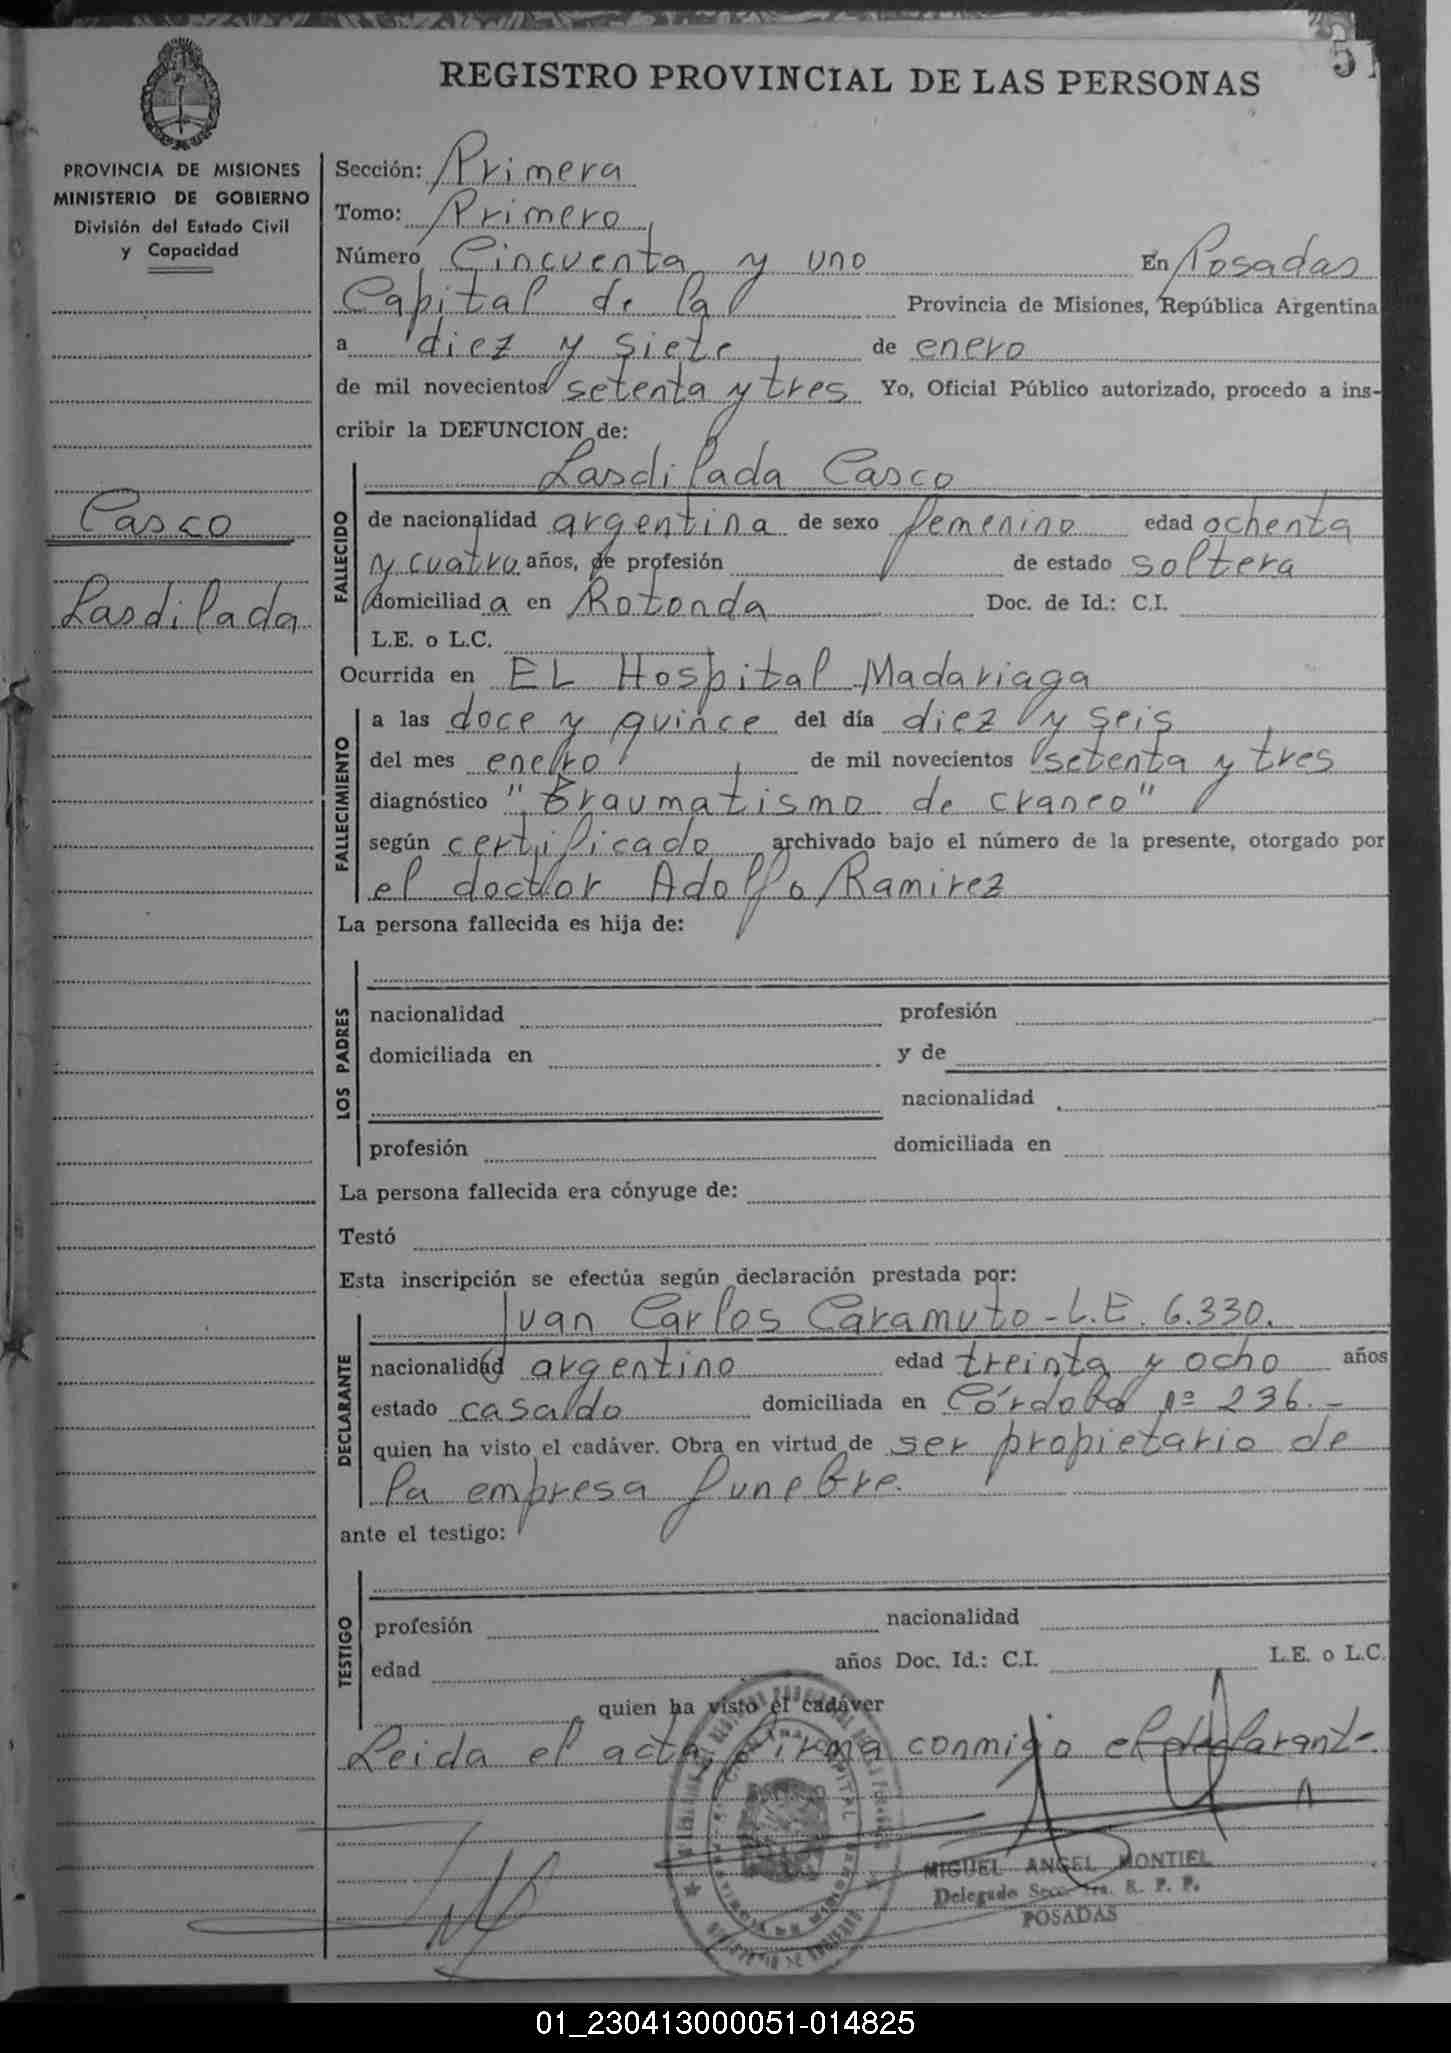 51
REGISTRO PROVINCIAL DE LAS PERSONAS
PROVINCIA DE MISIONES
MINISTERIO DE GOBIERNO
División del Estado Civil
y Capacidad
Casco
Lasdilada
Sección: Primera
Tomo: Primero
Número Cincuenta y uno En Posadas
Capital de la Provincia de Misiones, República Argentina
a diez y siete de enero
de mil novecientos setenta y tres Yo, Oficial Público autorizado, procedo a ins-
cribir la DEFUNCION de:
FALLECIDO
Lasdilada Casco
de nacionalidad argentina de sexo femenino edad ochenta
y cuatro años, de profesión de estado soltera
domiciliada en Rotonda Doc. de Id.: C.I.
L.E. o L.C.
Ocurrida en EL Hospital Madariaga
FALLECIMIENTO
a las doce y quince del día diez y seis
del mes enero de mil novecientos setenta y tres
diagnóstico "Traumatismo de craneo"
según certificado archivado bajo el número de la presente, otorgado por
el doctor Adolfo Ramirez
La persona fallecida es hija de:
LOS PADRES
nacionalidad profesión
domiciliada en y de
nacionalidad
profesión domiciliada en
La persona fallecida era cónyuge de:
Testó
Esta inscripción se efectúa según declaración prestada por:
DECLARANTE
Juan Carlos Caramuto - L.E. 6.330.
nacionalidad argentino edad treinta y ocho años
estado casado domiciliada en Córdoba nº 236.-
quien ha visto el cadáver. Obra en virtud de ser propietario de
la empresa funebre.
ante el testigo:
TESTIGO
profesión nacionalidad
edad años Doc. Id.: C.I. L.E. o L.C.
quien ha visto el cadáver
Leida el acta, firma conmigo el declarante.
MIGUEL ANGEL MONTIEL
Delegado Secc. 1ra. R. P. P.
POSADAS
01_230413000051-014825